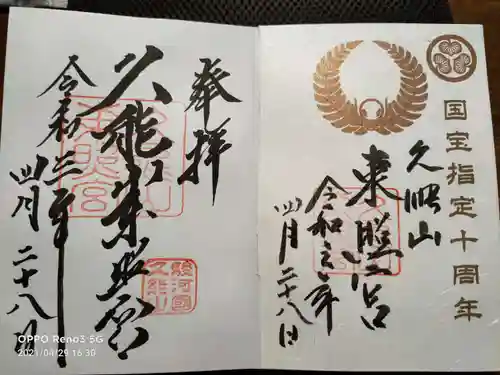 国宝指定十周年
久能山
東照宮
令和三年
四月二十八日
奉拝
久能山東照宮
令和三年
四月二十八日
駿河国
久能山
OPPO Reno3 5G
2021/04/29 16:30